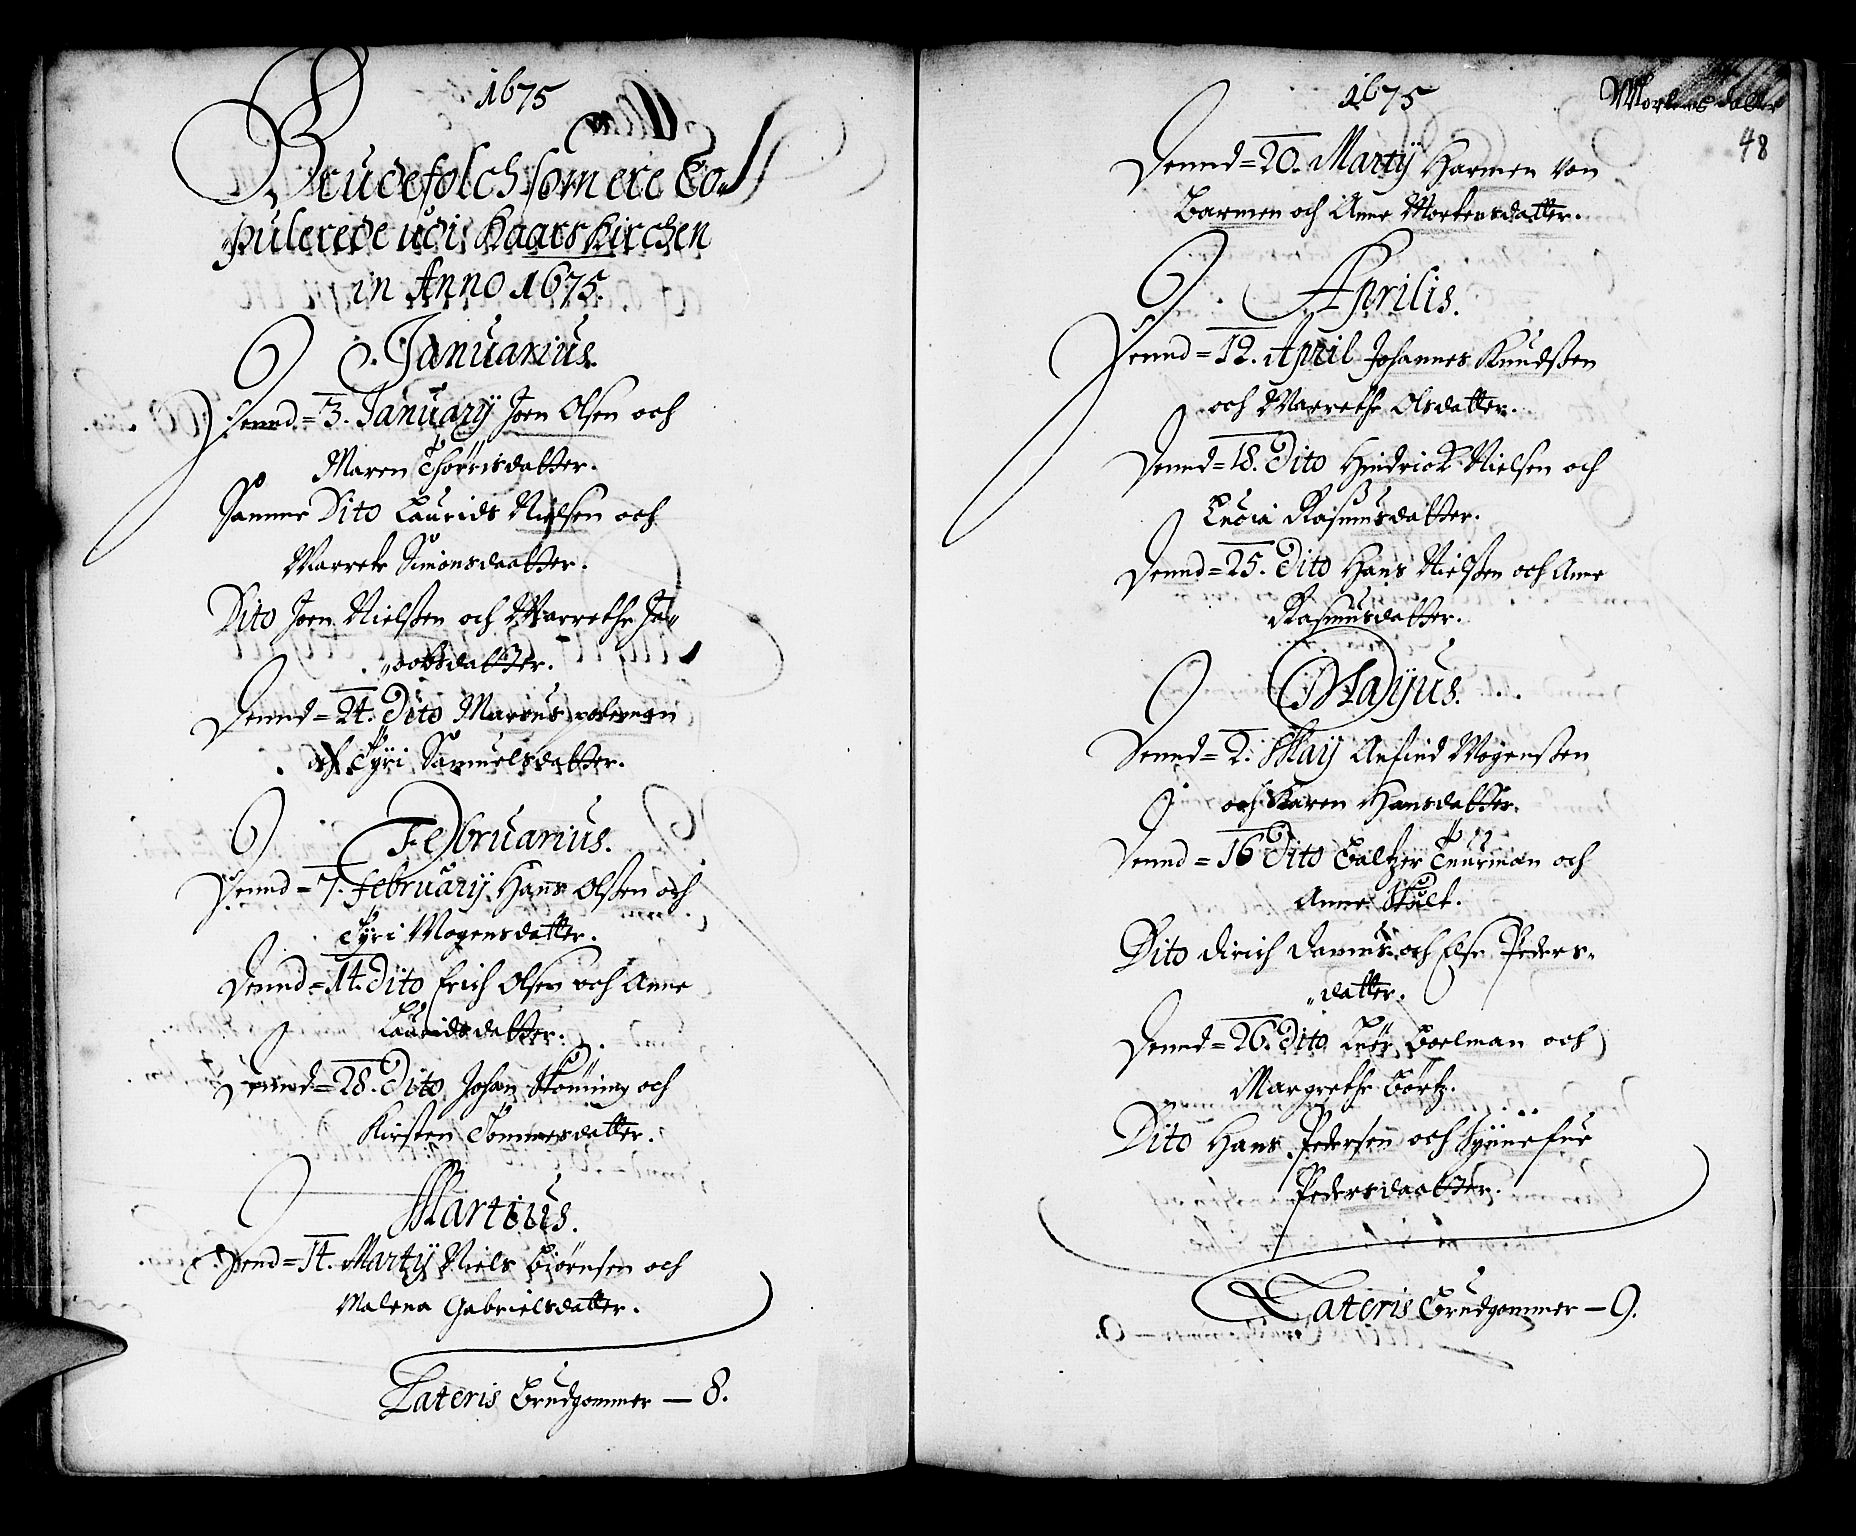 1675
Brudefolch som ere Co„
„pulerede udi Kaars Kirchen
in Anno 1675.
Januarius.
Dennd = 3. Januarÿ Joen Olsen och
Maren Thorrisdatter.
Samme Dito Laurids Nielsen och
Marrete Simonsdaatter.
Dito Joen Nielssen och Marrethe Ja„
„cobsdatter.
Dennd = 24. Dito Marcus
och Tÿri Samuelsdatter.
Februarius.
Dennd = 7. Februarÿ Hans Olssen och
Tÿri Mogensdatter.
Dennd = 14. Dito Erich Olsen och Anne
Lauridsdatter.
Dennd = 28. Dito Johan Könning och
Kirsten Tommesdatter.
Martius.
Dend = 14. Martÿ Niels Biörnsen och
Malena Gabrielsdatter.
Lateris Brudgommer — 8.
1675
Mortensdatter
48
Dennd = 20. Martÿ Harmen von
Barmen och Anne Mortensdatter.
Aprilis.
Dennd = 12. April Johannes Knudssen
och Marrethe Olsdatter.
Dennd = 18. Dito Hindrick Nielsen och
Lucia Rasmusdatter.
Dennd = 25. Dito Hans Nielssen och Anne
Rasmusdatter.
Maÿus.
Dennd = 2. Maÿ Anfind Mogenssen
och Karen Hansdatter.
Dennd = 16 Dito Baltzer Tuurman och
Anne Skult.
Dito Dirich Darmus och Else Peders„
„datter.
Dennd = 26. Dito Luër Boelman och
Margrethe Börtz.
Dito Hans Pedersen och Sÿnnefue
Pedersdaatter.
Lateris Brudgommer — 9.